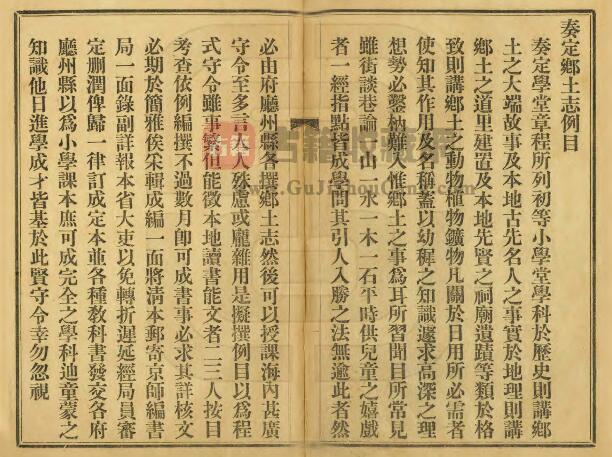 奏定鄉土志例目
奏定學堂章程所列初等小學堂學科於歷史則講鄉
土之大端故事及本地古先名人之事實於地理則講
鄉土之道里建置及本地先賢之祠廟遺蹟等類於格
致則講鄉土之動物植物鑛物凡關於日用所必需者
使知其作用及名稱蓋以幼穉之知識遽求高深之理
想勢必鑿枘難入惟鄉土之事爲耳所習聞目所常見
雖街談巷論一山一水一木一石平時供兒童之嬉戲
者一經指點皆成學問其引人入勝之法無逾此者然
必由府廳州縣各撰鄉土志然後可以授課海內甚廣
守令至多言人人殊慮或龐雜用是擬撰例目以爲程
式守令雖事繁但能徵本地讀書能文者二三人按目
考查依例編撰不過數月卽可成書事必求其詳核文
必期於簡雅俟采輯成編一面將淸本郵寄京師編書
局一面錄副詳報本省大吏以免轉折遲延經局員審
定删潤俾歸一律訂成定本並各種敎科書發交各府
廳州縣以爲小學課本庶可成完全之學科迪童蒙之
知識他日進學成才皆基於此賢守令幸勿忽視
www.GuJiShouCang.com